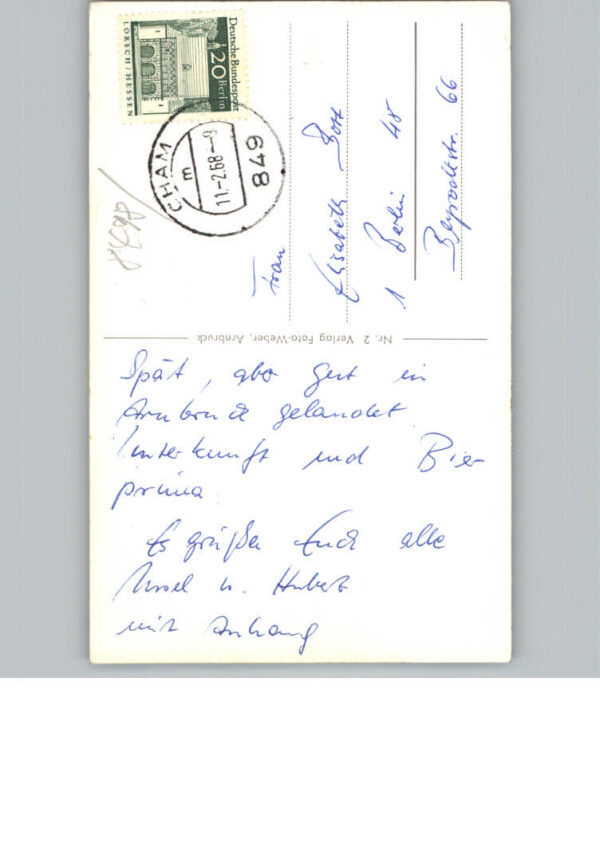 Deutsche Bundespost
20 Berlin
LORSCH/HESSEN
CHAM
m
11.-2.68--9
849
Frau
Elisabeth
1 Berlin 48
66
Nr. 2 Verlag Foto-Weber, Arnbruck
Spät, aber gut in
Arnbruck gelandet.
Unterkunft und Bier
prima.
Es grüßen Euch alle
Ursel u. Hubert
mit Anhang